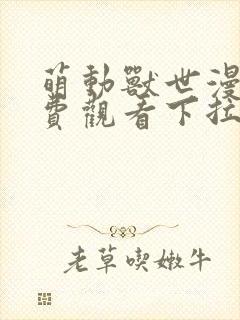 萌動獸世漫
費觀看下拉
老草喫嫩牛